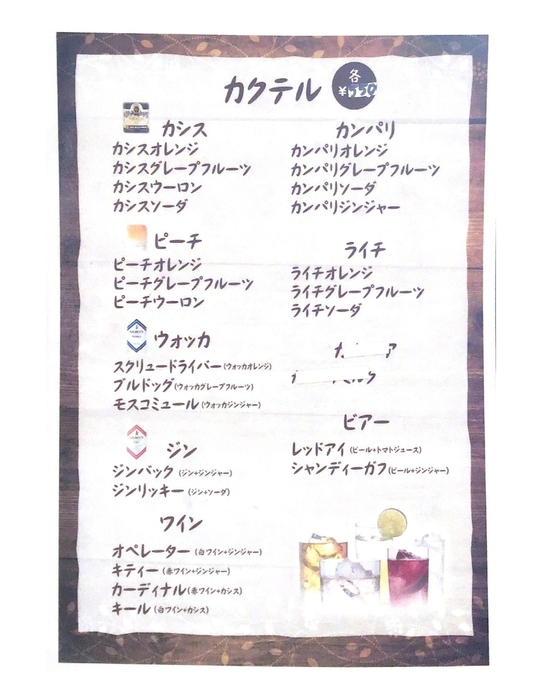 カクテル
各
カシス
カシスオレンジ
カシスグレープフルーツ
カシスウーロン
カシスソーダ
カンパリ
カンパリオレンジ
カンパリグレープフルーツ
カンパリソーダ
カンパリジンジャー
ピーチ
ピーチオレンジ
ピーチグレープフルーツ
ピーチウーロン
ライチ
ライチオレンジ
ライチグレープフルーツ
ライチソーダ
ウォッカ
スクリュードライバー(ウォッカオレンジ)
ブルドッグ(ウォッカグレープフルーツ)
モスコミュール(ウォッカジンジャー)
ジン
ジンバック(ジン+ジンジャー)
ジンリッキー(ジン+ソーダ)
ビアー
レッドアイ(ビール+トマトジュース)
シャンディーガフ(ビール+ジンジャー)
ワイン
オペレーター(白ワイン+ジンジャー)
キティー(赤ワイン+ジンジャー)
カーディナル(赤ワイン+カシス)
キール(白ワイン+カシス)